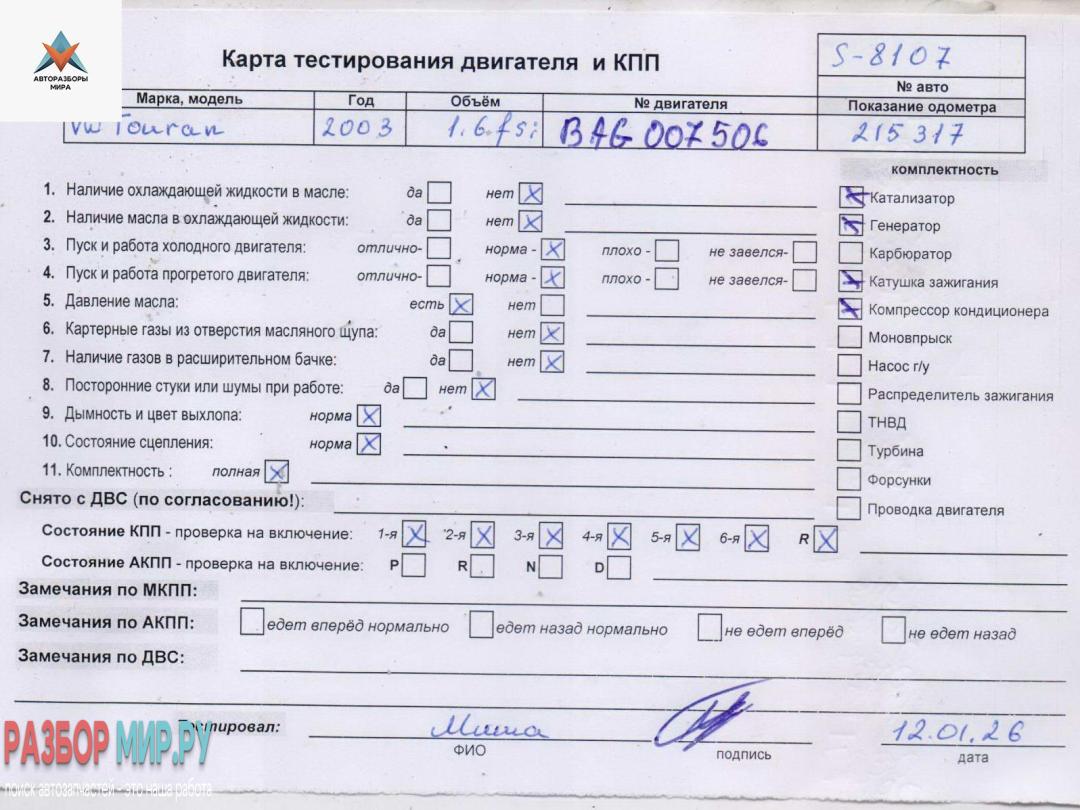 АВТОРАЗБОРЫ
МИРА
Карта тестирования двигателя и КПП
S-8107
№ авто
Марка, модель Год Объём № двигателя Показание одометра
VW Touran 2003 1.6.fsi BAG 007506 215317
комплектность
1. Наличие охлаждающей жидкости в масле: да нет X
2. Наличие масла в охлаждающей жидкости: да нет X
3. Пуск и работа холодного двигателя: отлично- норма - X плохо - не завелся-
4. Пуск и работа прогретого двигателя: отлично- норма - X плохо - не завелся-
5. Давление масла: есть X нет
6. Картерные газы из отверстия масляного щупа: да нет X
7. Наличие газов в расширительном бачке: да нет X
8. Посторонние стуки или шумы при работе: да нет X
9. Дымность и цвет выхлопа: норма X
10. Состояние сцепления: норма X
11. Комплектность : полная X
X Катализатор
X Генератор
Карбюратор
X Катушка зажигания
X Компрессор кондиционера
Моновпрыск
Насос г/у
Распределитель зажигания
ТНВД
Турбина
Форсунки
Проводка двигателя
Снято с ДВС (по согласованию!):
Состояние КПП - проверка на включение: 1-я X 2-я X 3-я X 4-я X 5-я X 6-я X R X
Состояние АКПП - проверка на включение: P R N D
Замечания по МКПП:
Замечания по АКПП: едет вперёд нормально едет назад нормально не едет вперёд не едет назад
Замечания по ДВС:
Тестировал: Миша 12.01.26
ФИО подпись дата
РАЗБОР МИР.РУ
поиск автозапчастей - это наша работа